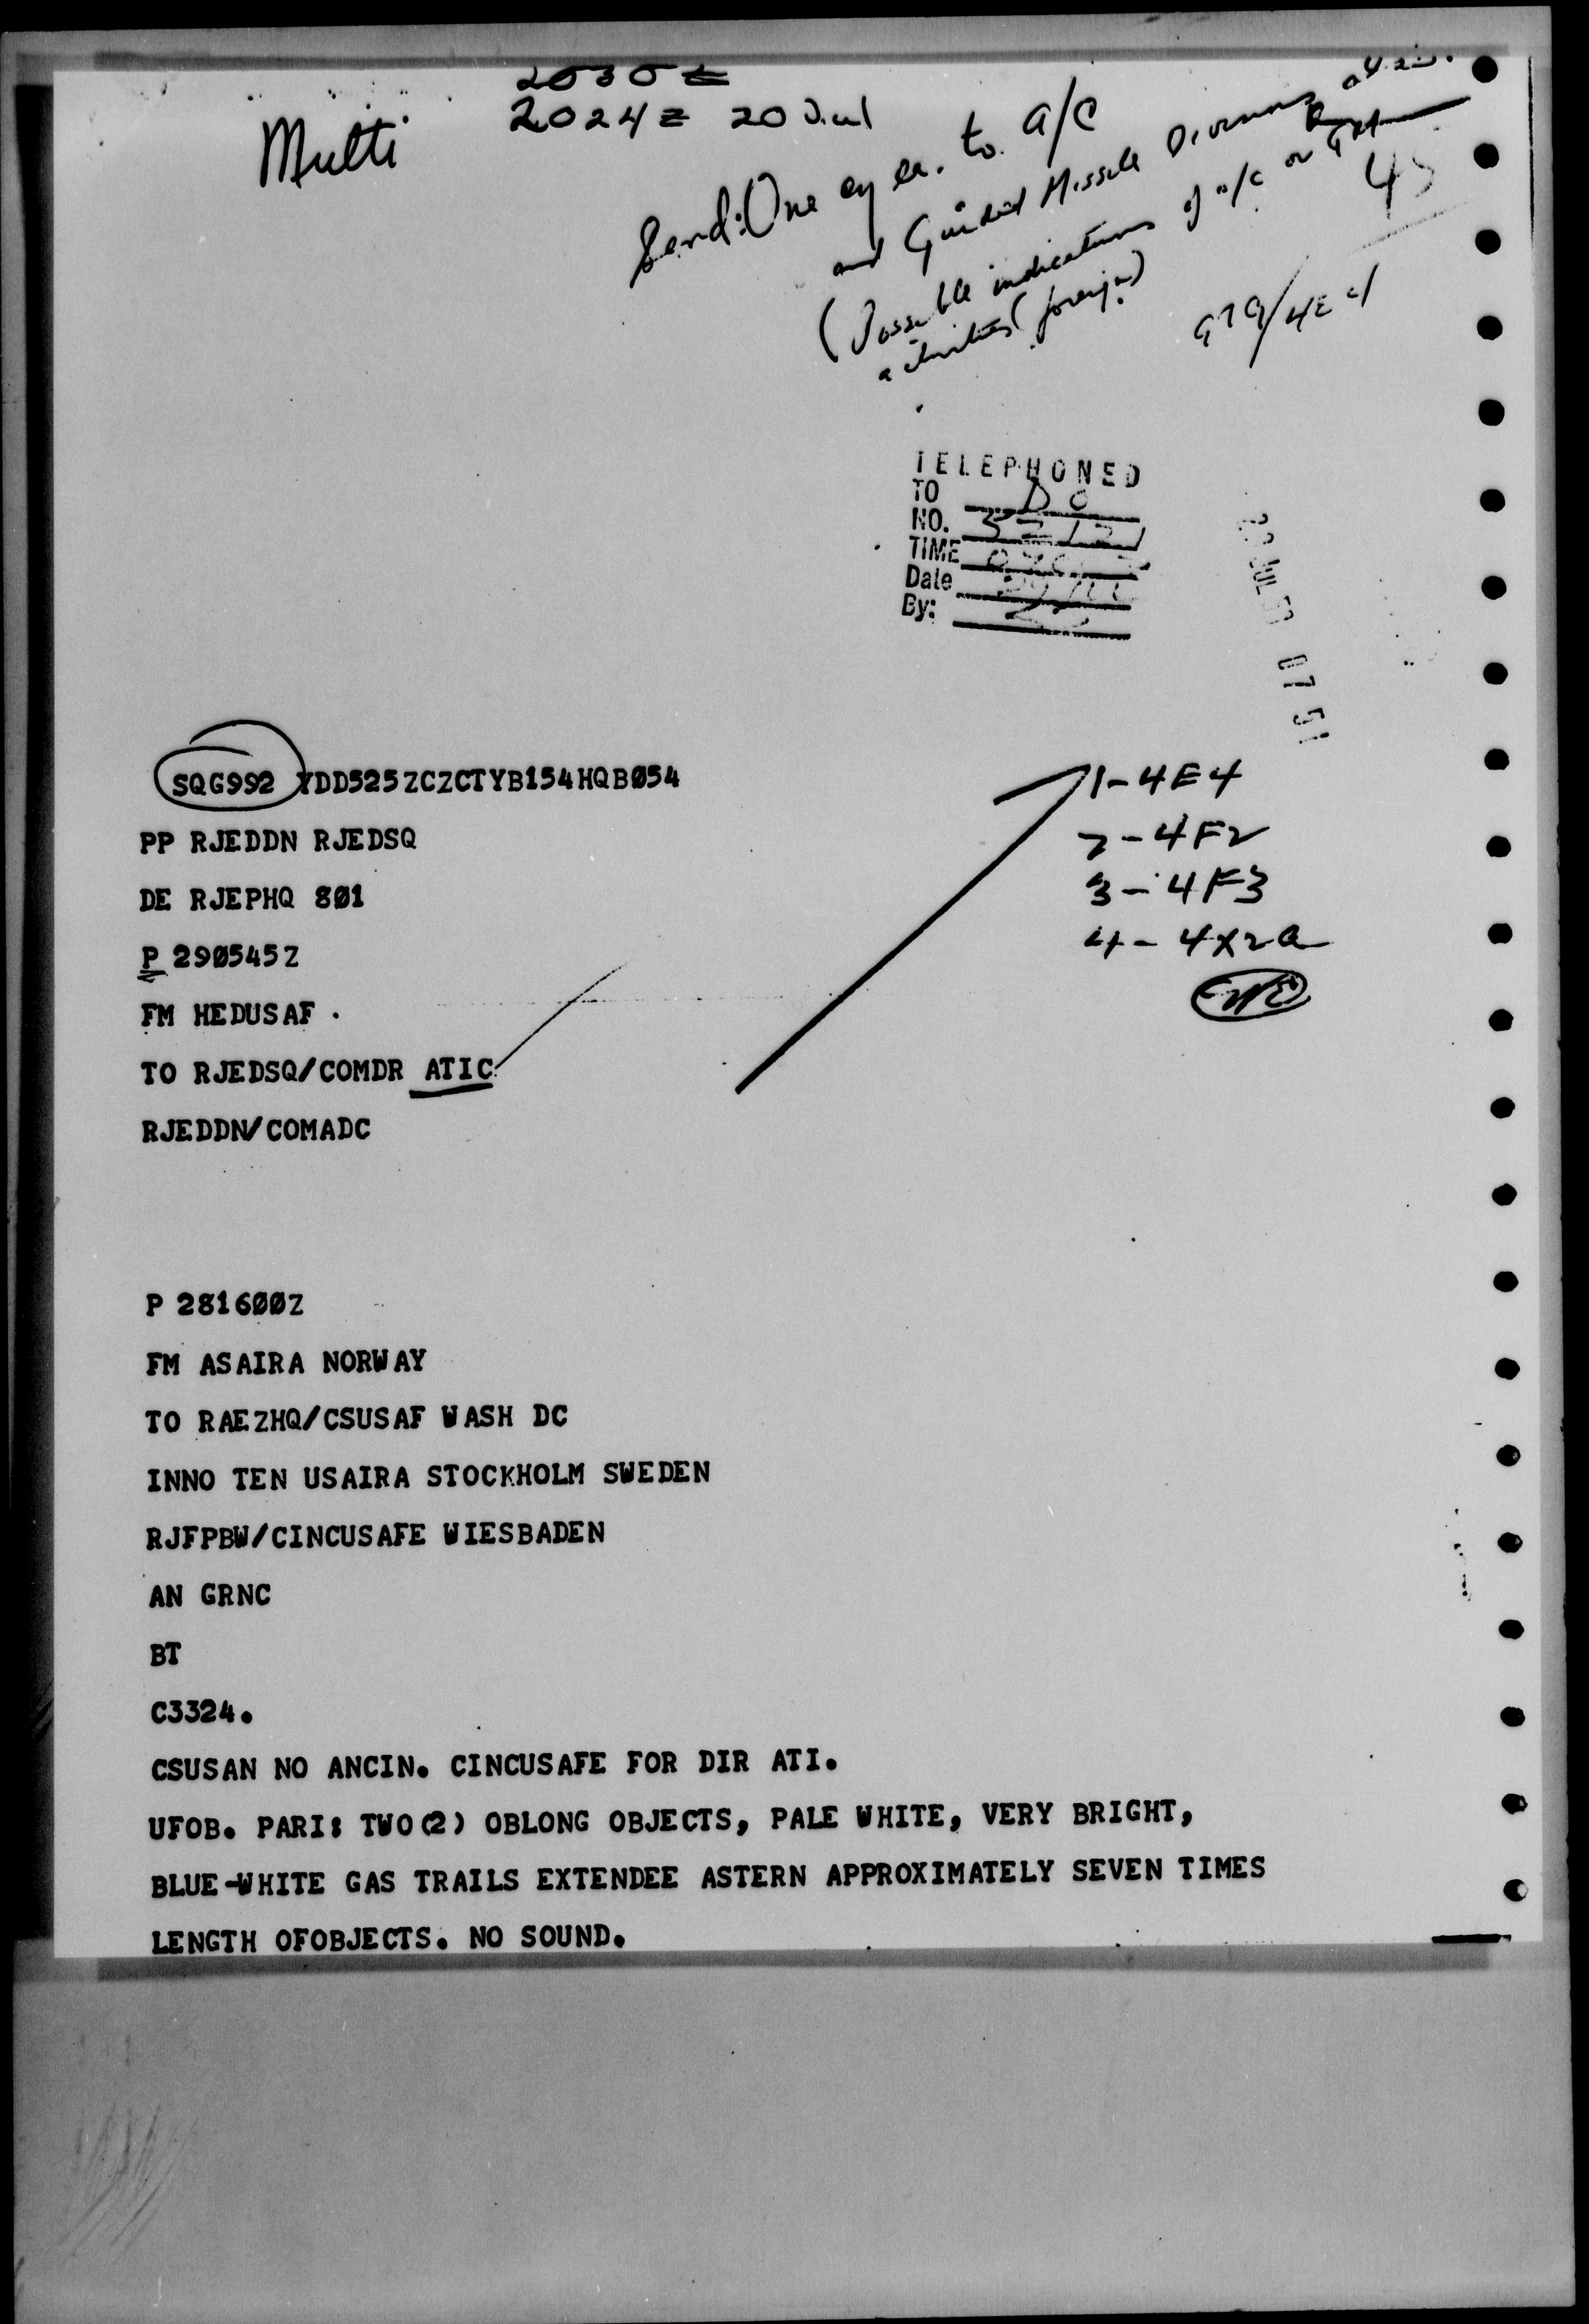 2030Z
2024Z 20 Jul
Multi
Send: One cy ea. to a/c
and Guided Missile Divisions
(Possible indications of a/c or GM
activities (foreign)
TELEPHONED
TO DO
NO.
TIME
Date
By:
JUL 07 51
SQG992 YDD525ZCZCTYB154HQBØ54
PP RJEDDN RJEDSQ
DE RJEPHQ 8Ø1
P 29Ø545Z
FM HEDUSAF .
TO RJEDSQ/COMDR ATIC
RJEDDN/COMADC
1-4E4
2-4F2
3-4F3
4-4X2a
P 2816ØØZ
FM ASAIRA NORWAY
TO RAEZHQ/CSUSAF WASH DC
INNO TEN USAIRA STOCKHOLM SWEDEN
RJFPBW/CINCUSAFE WIESBADEN
AN GRNC
BT
C3324.
CSUSAN NO ANCIN. CINCUSAFE FOR DIR ATI.
UFOB. PARI: TWO(2) OBLONG OBJECTS, PALE WHITE, VERY BRIGHT,
BLUE-WHITE GAS TRAILS EXTENDEE ASTERN APPROXIMATELY SEVEN TIMES
LENGTH OFOBJECTS. NO SOUND.